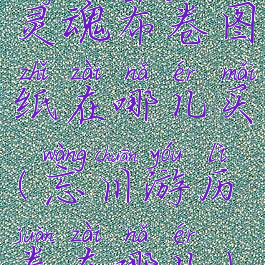 灵魂布卷图
zhǐ zài nǎ ér mǎi
纸在哪儿买
wàng chuān yóu lì
(忘川游历
juàn zài nǎ ér
卷在哪儿)